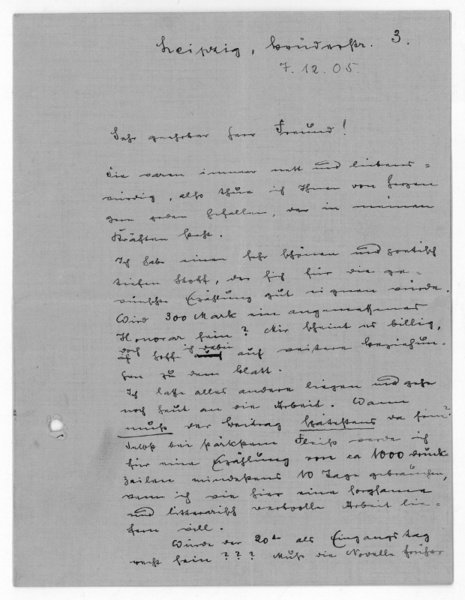 Leipzig, Brüderstr. 3.
7.12.05.
Sehr geehrter Herr Freund!
Sie waren immer nett und liebens-
würdig, also thue ich Ihnen von Herzen
gern jeden Gefallen, der in meinen
Kräften steht.
Ich habe einen sehr schönen und poetisch
tiefen Stoff, der sich für die ge-
wünschte Erzählung gut eignen würde.
Wird 300 Mark ein angemessenes
Honorar sein? Mir scheint es billig,
doch ich hoffe dabei auf weitere Beziehun-
gen zu dem Blatt.
Ich lasse alles andere liegen und gehe
noch heut an die Arbeit. Wann
muß der Beitrag spätestens da sein?
Selbst bei starkem Fleiß werde ich
für eine Erzählung von ca 1000 Druck
zeilen mindestens 10 Tage gebrauchen,
wenn ich wie hier eine sorgsame
und litterarisch wertvolle Arbeit lie-
fern will.
Würde der 20te als Eingangstag
recht sein??? Muß die Novelle früher